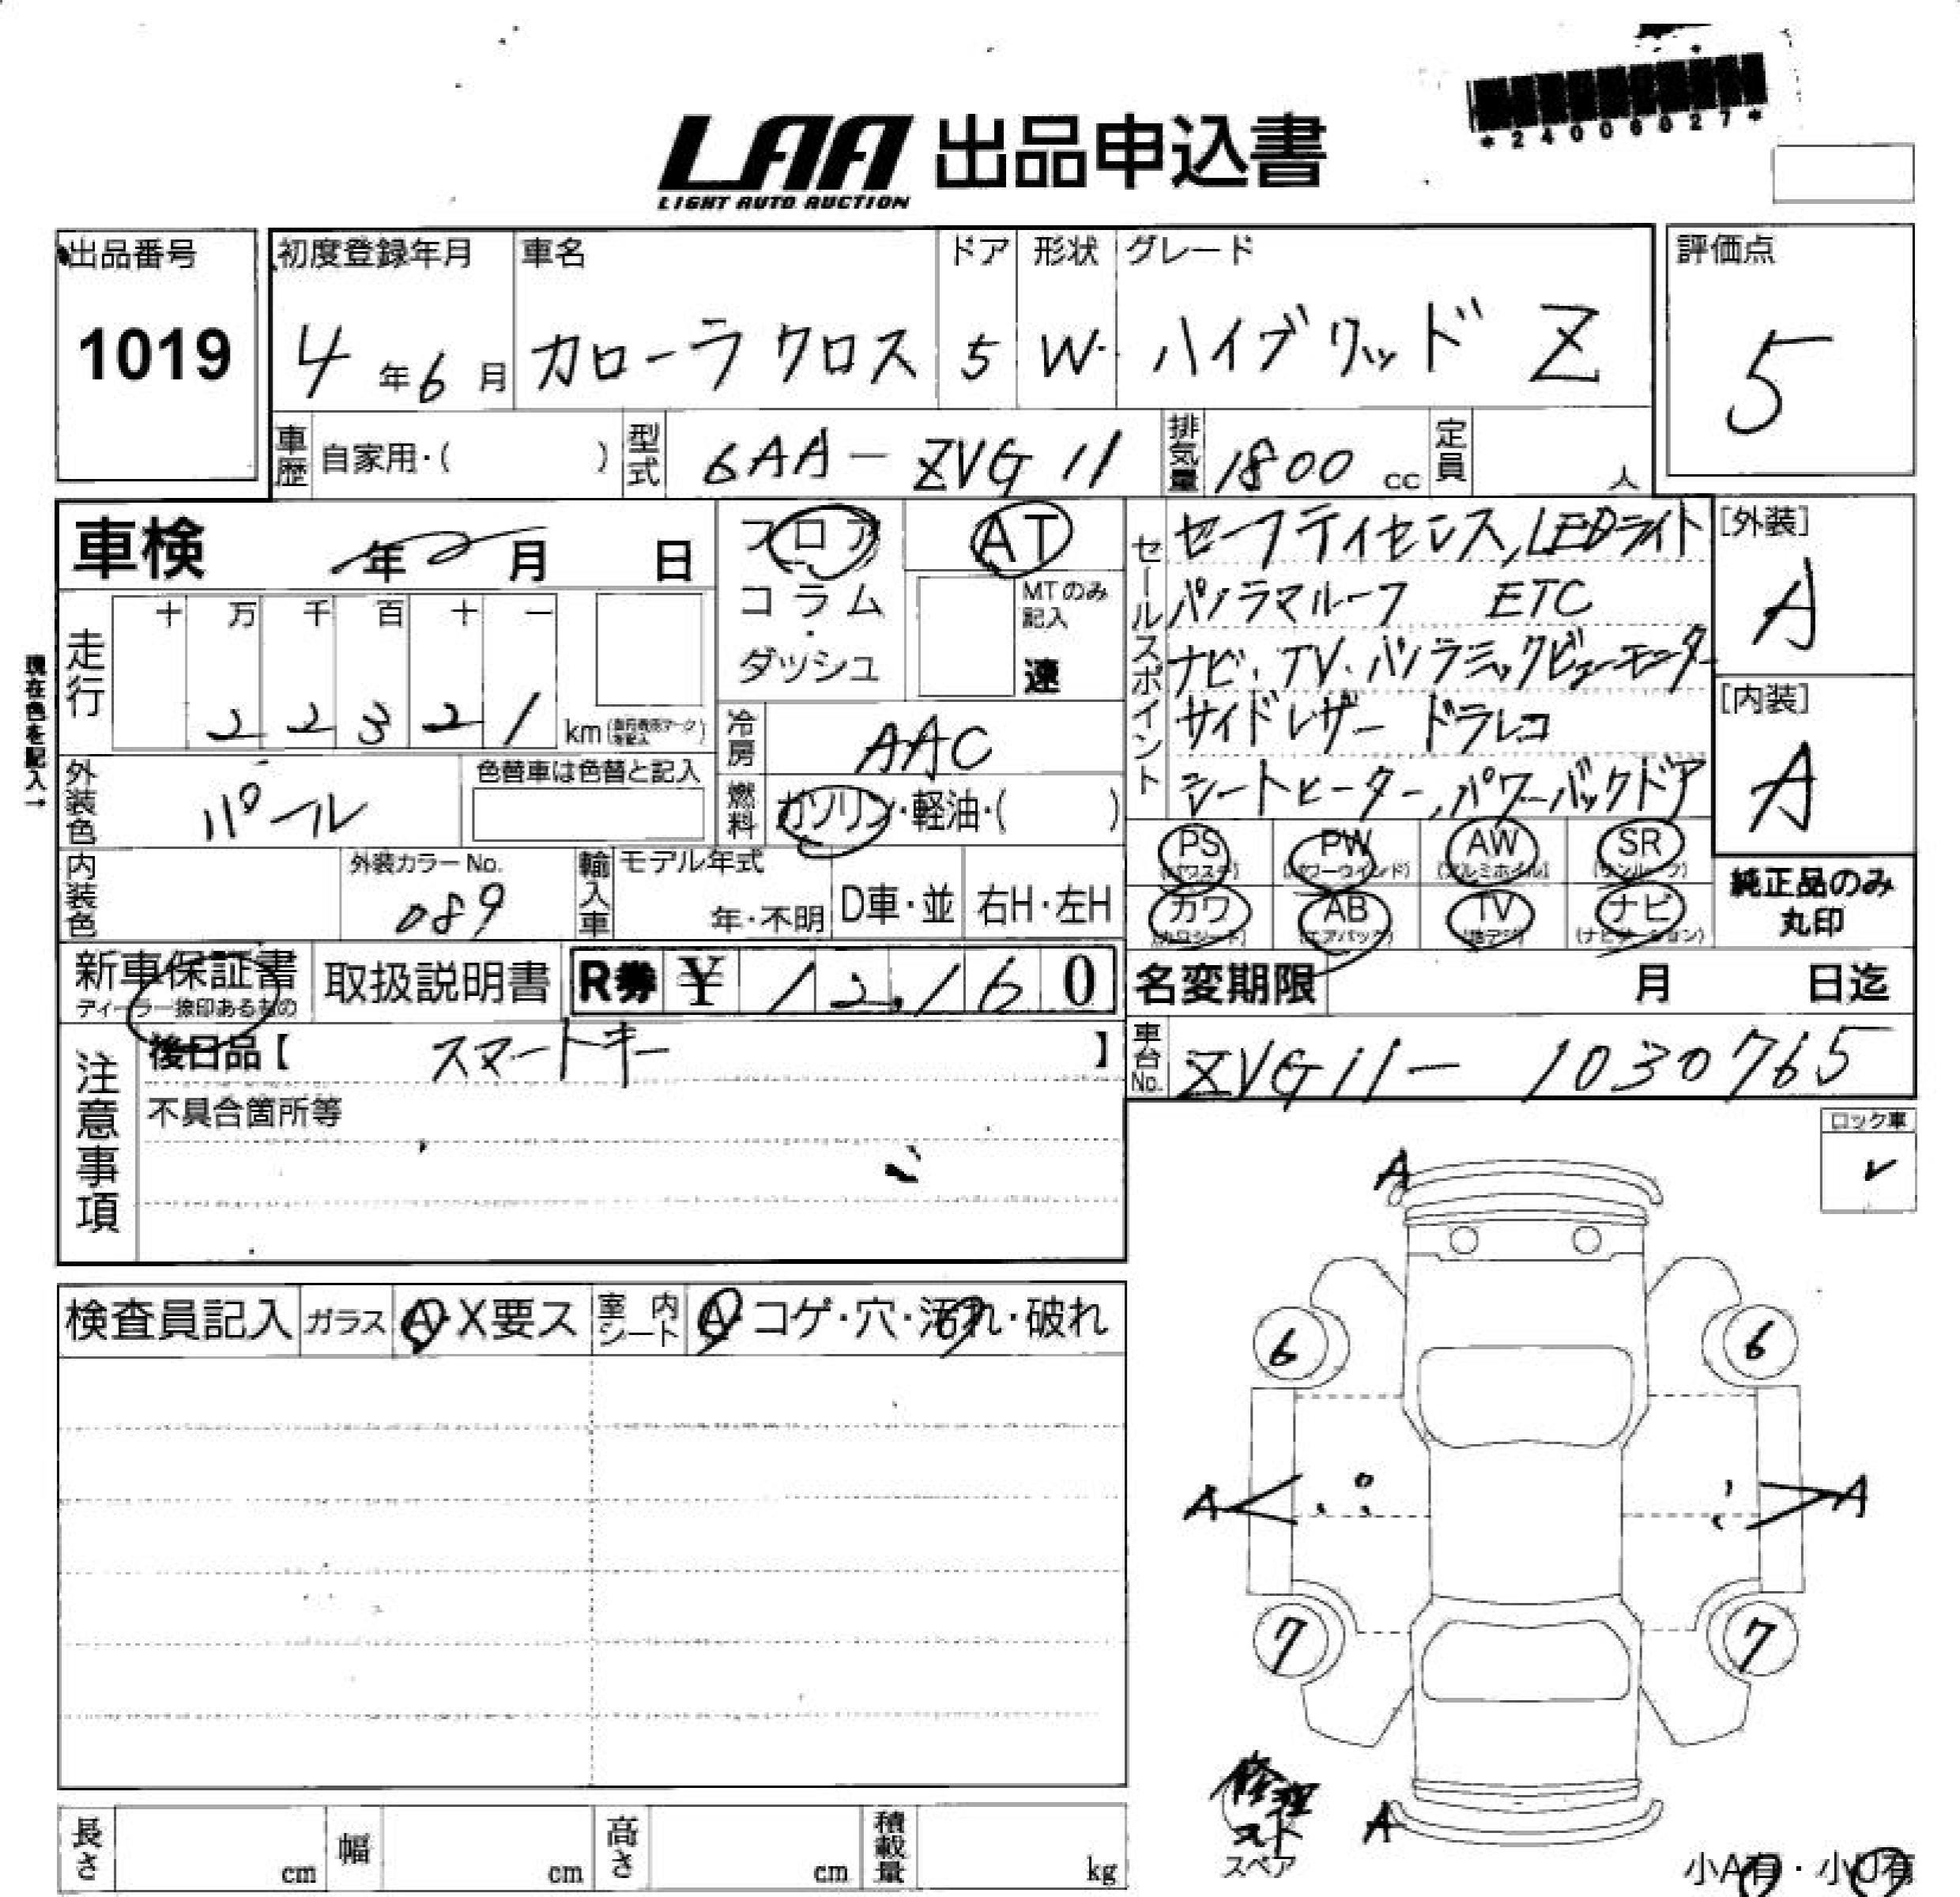 *24006027*
LAA 出品申込書
LIGHT AUTO AUCTION
出品番号 初度登録年月 車名 ドア 形状 グレード 評価点
1019 4年6月 カローラクロス 5 W ハイブリッド Z 5
車歴 自家用・( ) 型式 6AA-ZVG11 排気量 1800 cc 定員 人
車検 年 月 日 フロア AT
コラム・ダッシュ MTのみ記入 速
セールスポイント
セーフティセンス, LEDライト
パノラマルーフ ETC
ナビ・TV・パノラミックビューモニター
サイドレザー ドラレコ
シートヒーター, パワーバックドア
[外装] A
[内装] A
現在色を記入→
走行 十 万 千 百 十 一
2 2 3 2 1 km
冷房 AAC
外装色 パール 色替車は色替と記入
燃料 ガソリン・軽油・( )
PS (パワステ) PW (パワーウインド) AW (アルミホイル) SR (サンルーフ)
カワ (カワシート) AB (エアバック) TV (地デジ) ナビ (ナビゲーション)
純正品のみ丸印
内装色 外装カラーNo. 089 輸入車 モデル年式 年・不明 D車・並 右H・左H
新車保証書 取扱説明書 R券 ¥ 12,160 名変期限 月 日迄
ディーラー捺印あるもの
注意事項 後日品【 スマートキー 】 車台No. ZVG11-1030765
不具合箇所等
ロック車
✓
検査員記入 ガラス A・X要ス 室内シート A・コゲ・穴・汚れ・破れ
A
6 6
A A
7 7
修理
コスト
A
スペア
長さ cm 幅 cm 高さ cm 積載量 kg
小A有・小U有